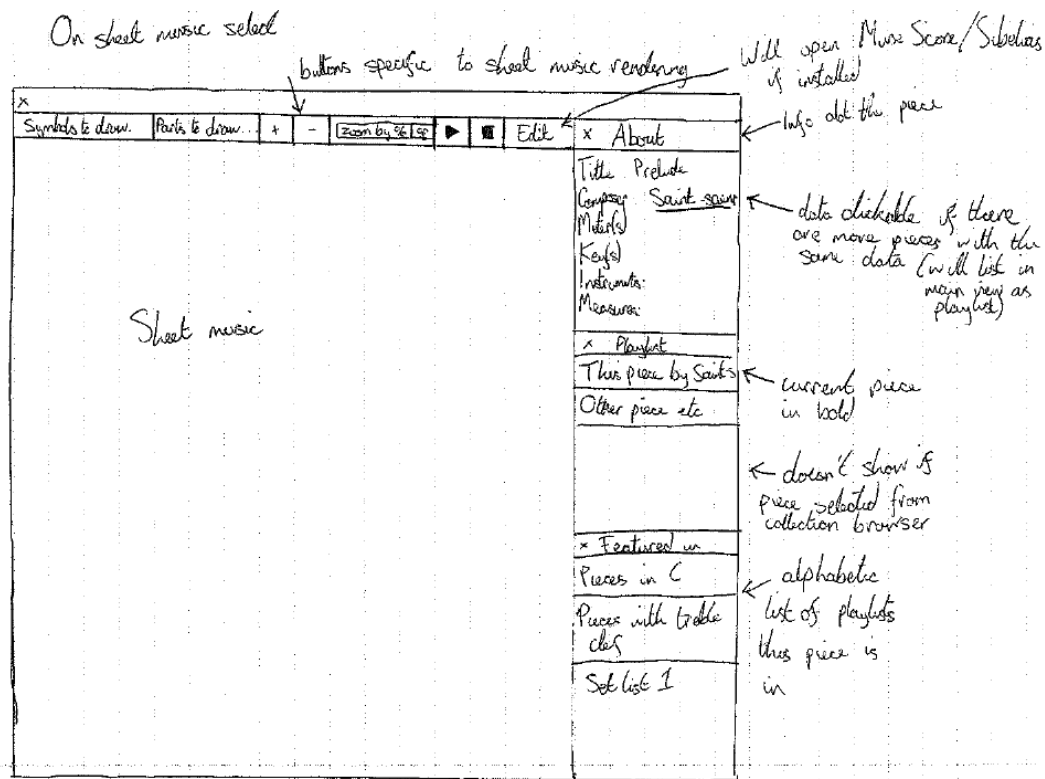 On sheet music select
buttons specific to sheet music rendering
Will open MuseScore/Sibelius
if installed
x
Symbols to draw..
Parts to draw...
+
-
zoom by %
Edit
x About
Info abt the piece
Title Prelude
Composer Saint-saens
Meter(s)
Key(s)
Instruments:
Measures:
data clickable if there
are more pieces with the
same data (will list in
main view as
playlist)
Sheet music
x Playlist
This piece by Saints
Other piece etc
current piece
in bold
doesn't show if
piece selected from
collection browser
x Featured in
Pieces in C
Pieces with treble
clef
Set list 1
alphabetic
list of playlists
this piece is
in